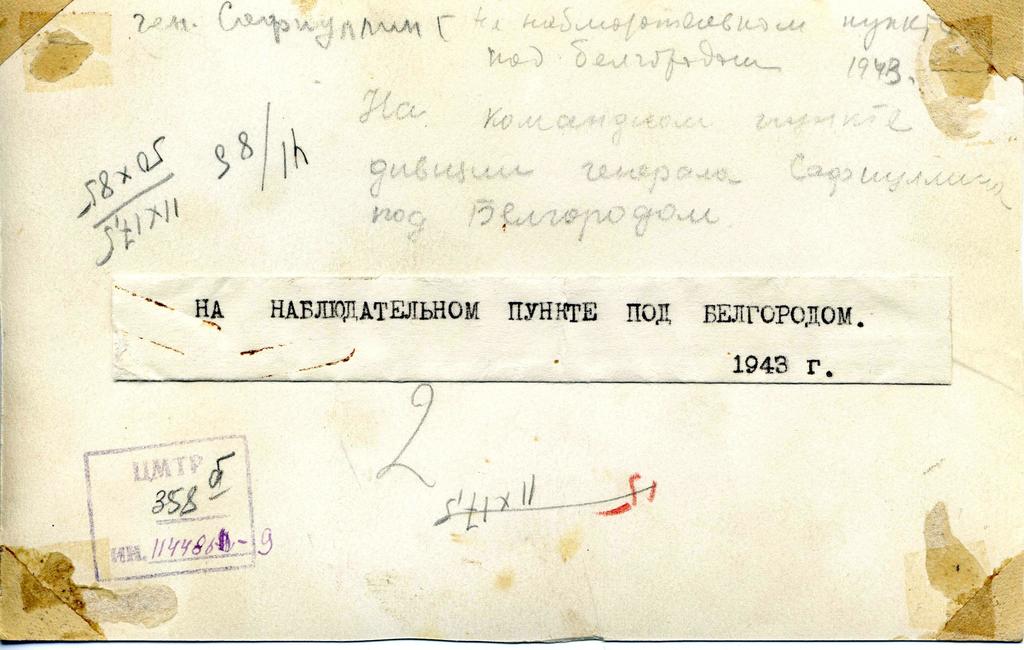 ген. Сафиуллин Г на наблюдательном пункте
под Белгородом 1943.
На командном пункте
дивизии генерала Сафиуллина
под Белгородом
98/14
11 х 17,5
НА НАБЛЮДАТЕЛЬНОМ ПУНКТЕ ПОД БЕЛГОРОДОМ.
1943 г.
2
11 х 17,5
15
ЦМТР
358 б
ИН.